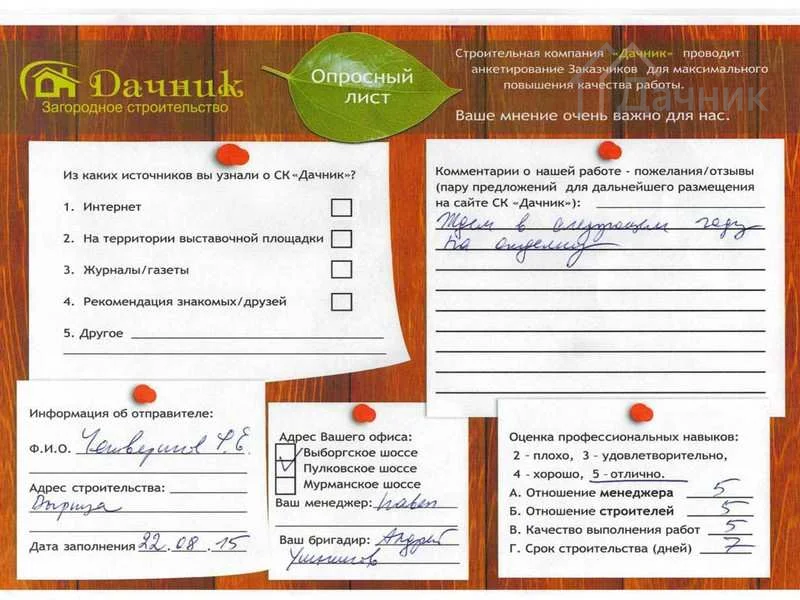 Дачник
Загородное строительство
Опросный
лист
Строительная компания «Дачник» проводит
анкетирование Заказчиков для максимального
повышения качества работы.
Ваше мнение очень важно для нас.
Дачник
Из каких источников вы узнали о СК «Дачник»?
1. Интернет
2. На территории выставочной площадки
3. Журналы/газеты
4. Рекомендация знакомых/друзей
5. Другое
Комментарии о нашей работе - пожелания/отзывы
(пару предложений для дальнейшего размещения
на сайте СК «Дачник»):
Ждем в следующем году
на отделку
Информация об отправителе:
Ф.И.О.
Адрес строительства:
Вырица
Дата заполнения 22.08.15
Адрес Вашего офиса:
Выборгское шоссе
Пулковское шоссе
Мурманское шоссе
Ваш менеджер: Павел
Ваш бригадир: Андрей
Оценка профессиональных навыков:
2 - плохо, 3 - удовлетворительно,
4 - хорошо, 5 - отлично.
А. Отношение менеджера 5
Б. Отношение строителей 5
В. Качество выполнения работ 5
Г. Срок строительства (дней) 7